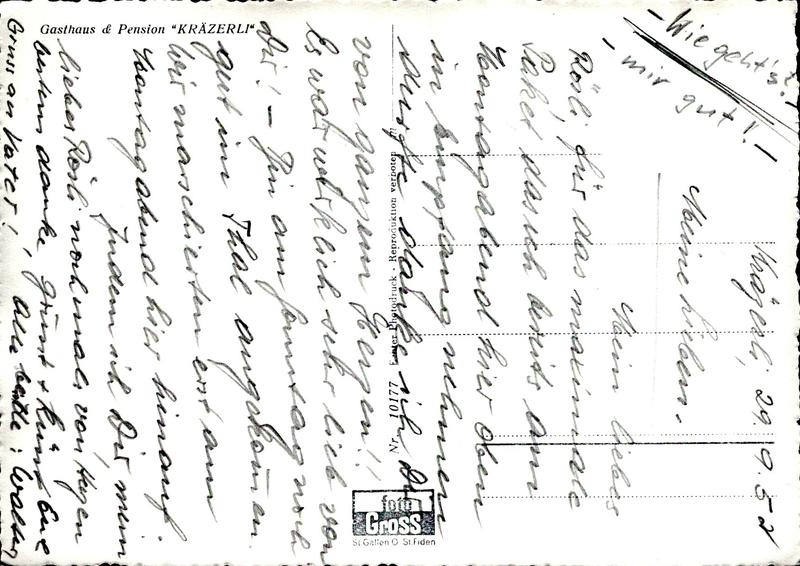 Gasthaus & Pension "KRÄZERLI"
- Wie geht's? !
- mir gut!! -
Krägerli, 29. 9. 52
Meine Lieben,
Mein liebes
Rösli, für das maximale
Paket das ich bereits am
Montagabend hier oben
in Empfang nehmen
durfte danke ich Dir
von ganzem Herzen!!
Es war wirklich sehr lieb von
Dir! - Bin am Sonntag noch
gut im Thal angekommen.
Wir marschierten erst am
Montagabend hier hinauf.
Indem ich Dir, mein
liebes Rösli nochmals von Herzen
bestens danke, grüsst + küsst Euch
alle beide: Walter
Gruss an Vater!
Nr. 10177 Photodruck - Reproduktion verboten
foto
Gross
St.Gallen O St.Fiden